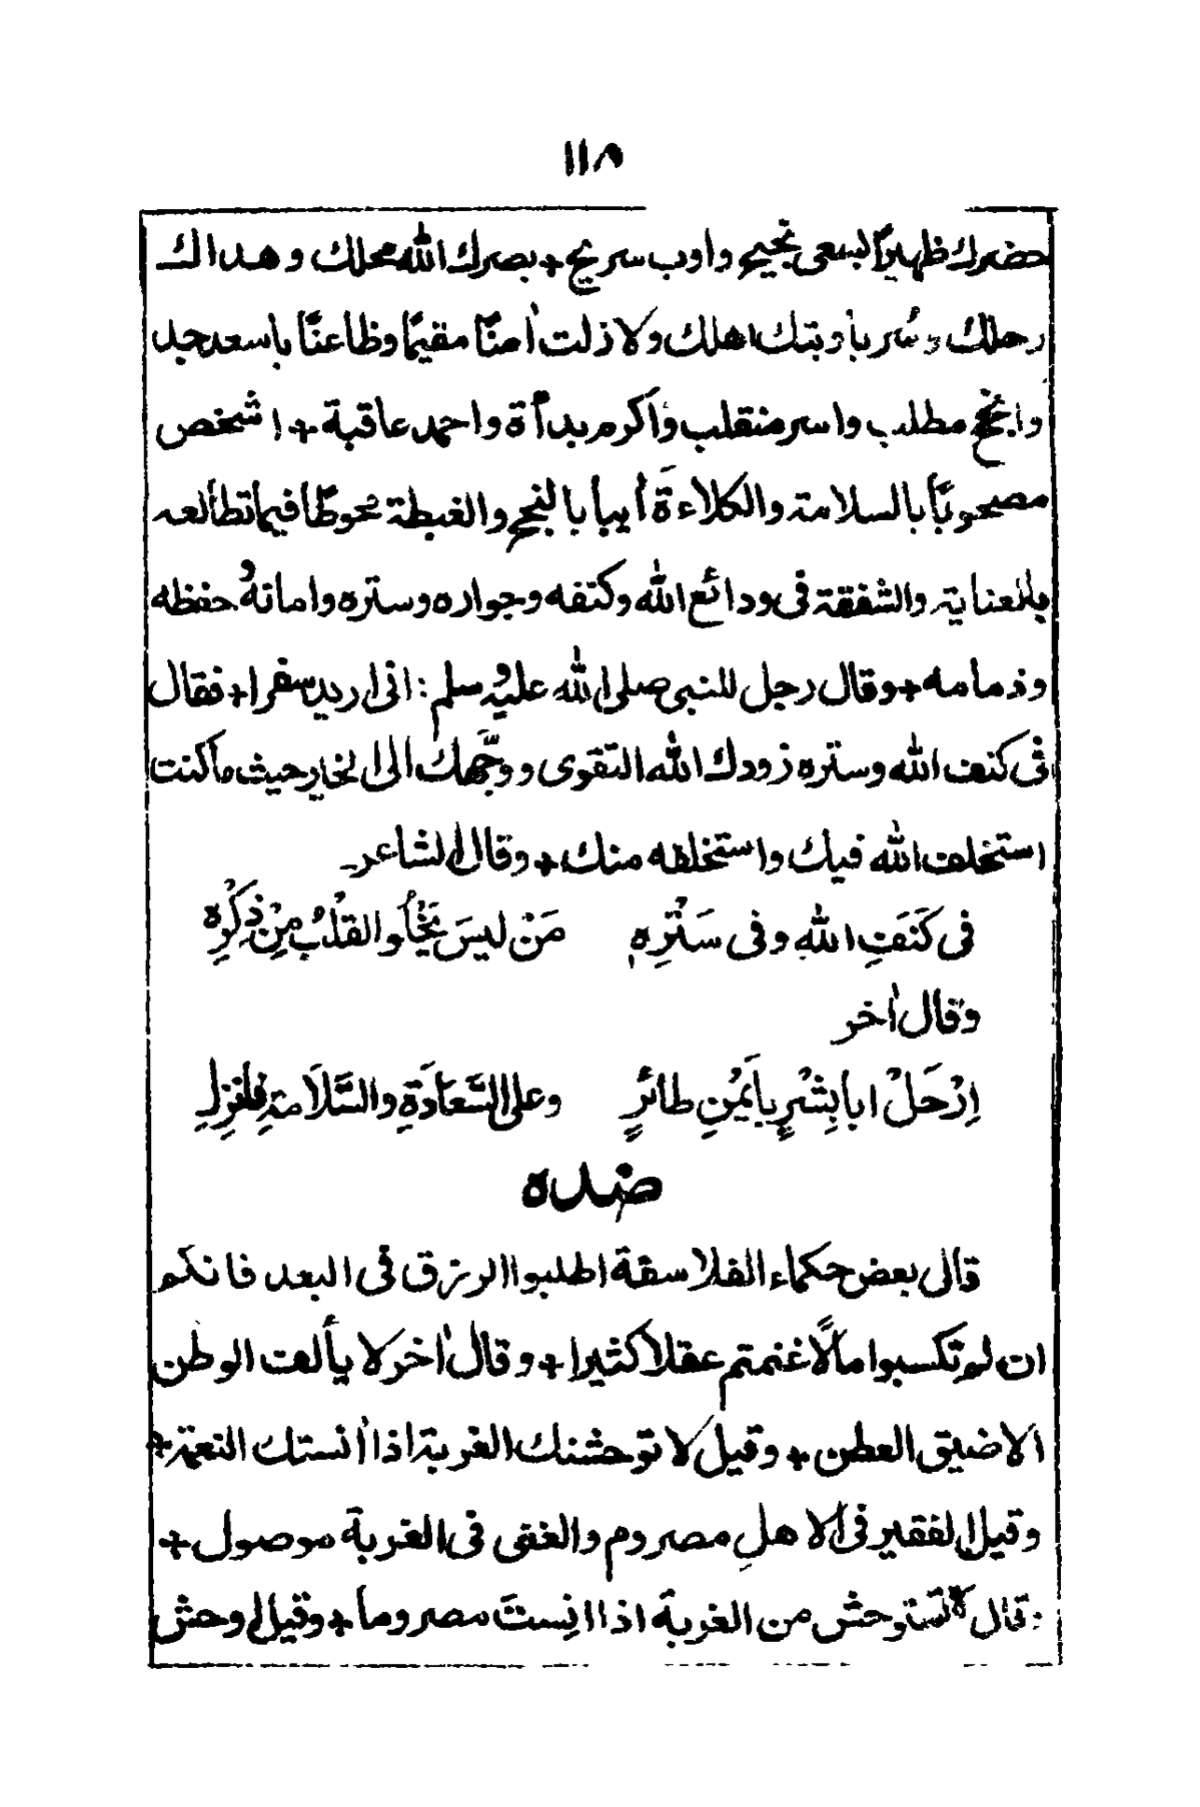 ١١٨
حضرك ظهيرًا لسعى نجيح واوب سريح + بصرك الله محلك وهداك
رحلك وسُر بأوبتك اهلك ولا زلت اٰمنًا مقيمًا وظاعنًا باسعد جد
وانجح مطلب واسر منقلب واكرم بدأة واحمد عاقبة + اشخص
مصحوبًا بالسلامة والكلاءة أيبا بالنجح والغبطة محوطًا فيما تطالعه
بالعناية والشفقة فى ودائع الله وكنفه وجواره وستره وامانه وحفظه
وذمامه + وقال رجل للنبى صلى الله عليه وسلم : انى اريد سفرا + فقال
فى كنف الله وستره زودك الله التقوى ووجّهك الى الخير حيث ما كنت
استخلف الله فيك واستخلفه منك + وقال الشاعر
فى كَنَفِ الله وفى سَتْرِه مَنْ ليسَ يَخْلُو القلْبُ مِنْ ذِكْرِهِ
وقال اٰخر
اِرْحَلْ ابا بِشْرٍ بأيْمَنِ طائرٍ وعلى السَّعادَةِ والسَّلَامةِ فانزِلِ
ضده
قال بعض حكماء الفلاسفة اطلبوا الرزق فى البعد فانكم
ان لم تكسبوا مالًا غنمتم عقلا كثيرا + وقال اٰخر لا يألف الوطن
الا ضيق العطن + وقيل لا توحشنك الغربة اذا اٰنستك النعمة +
وقيل الفقير فى الاهلِ مصروم والغنى فى الغربة موصول +
وقال لا تستوحش من الغربة اذا انِستَ مصروما + وقيل اوحش